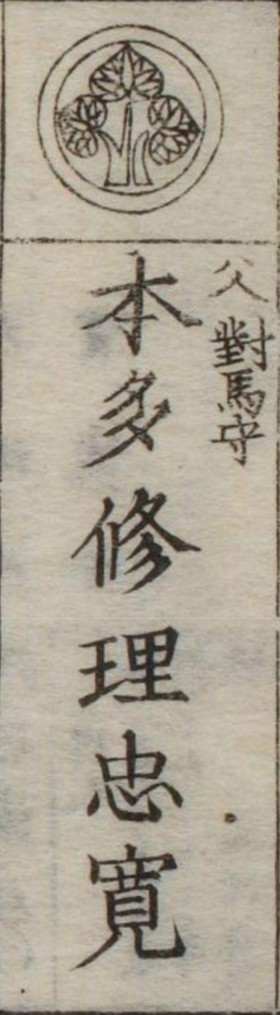 父對馬守
本多修理忠寛